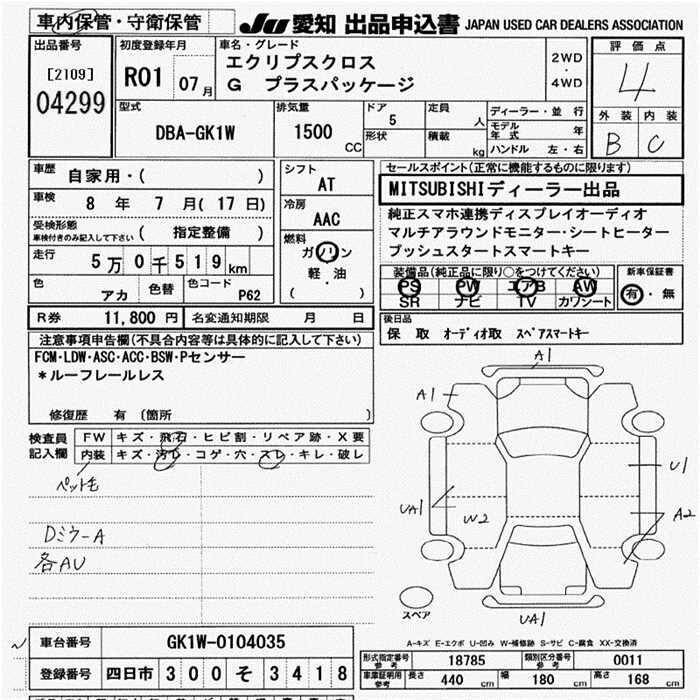 車内保管・守衛保管
JU 愛知 出品申込書 JAPAN USED CAR DEALERS ASSOCIATION
出品番号
[2109]
04299
初度登録年月
R01 07月
車名・グレード
エクリプスクロス
G プラスパッケージ
2WD
・
4WD
評価点
4
外装 内装
B C
型式
DBA-GK1W
排気量
1500 CC
ドア
5
形状
定員
人
積載
kg
ディーラー・並行
モデル年式 年
ハンドル 左・右
車歴
自家用・( )
車検
8 年 7 月( 17 日)
受検形態
車検付きのみ記入して下さい
( 指定整備 )
走行
5万0千519km
色
アカ
色替
色コード
P62
シフト
AT
冷房
AAC
燃料
ガソリン
軽・油
( )
セールスポイント(正常に機能するものに限ります)
MITSUBISHIディーラー出品
純正スマホ連携ディスプレイオーディオ
マルチアラウンドモニター・シートヒーター
プッシュスタートスマートキー
装備品(純正品に限り○をつけてください)
PS PW エアB AW
SR ナビ TV カワシート
新車保証書
有・無
R券 11,800 円
名変通知期限 月 日
後日品
保 取 オーディオ取 スペアスマートキー
注意事項申告欄(不具合内容等は具体的に記入して下さい)
FCM・LDW・ASC・ACC・BSW・Pセンサー
*ルーフレールレス
修復歴 有 (箇所 )
検査員
記入欄
FW キズ・飛石・ヒビ割・リペア跡・X要
内装 キズ・汚レ・コゲ・穴・スレ・キレ・破レ
ペット毛
Dミラ-A
各AU
A1
A1
U1
A2
UA1
W2
UA1
スペア
A-キズ E-エクボ U-凹み W-補修跡 S-サビ C-腐食 XX-交換済
車台番号
GK1W-0104035
登録番号
四日市 300 そ 3418
形式指定番号
参考
18785
類別区分番号
参考
0011
車庫証明用
参考
長さ 440 cm
幅 180 cm
高さ 168 cm